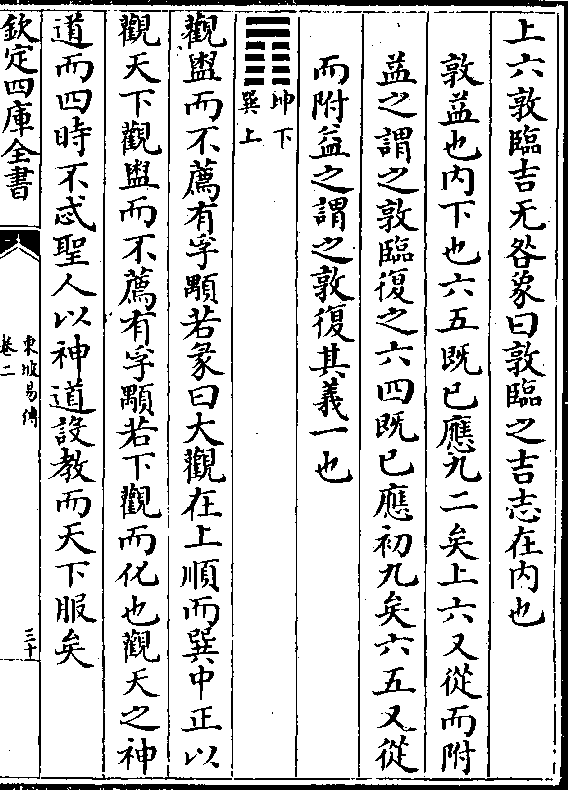 上六敦臨吉无咎象曰敦臨之吉志在内也
敦益也内下也六五既已應九二矣上六又從而附
益之謂之敦臨復之六四既已應初九矣六五又從
而附益之謂之敦復其義一也
坤下
巽上
觀盥而不薦有孚顒若彖曰大觀在上順而巽中正以
觀天下觀盥而不薦有孚顒若下觀而化也觀天之神
道而四時不忒聖人以神道設教而天下服矣
欽定四庫全書
東坡易傳
卷二
三十